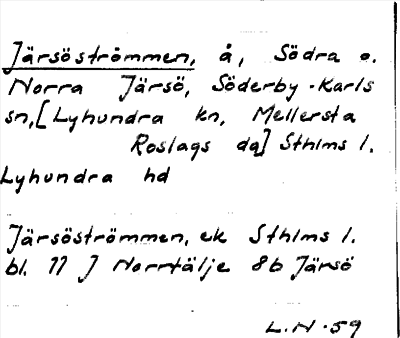 Järsöströmmen, å, Södra o.
Norra Järsö, Söderby-Karls
sn, [Lyhundra kn, Mellersta
Roslags dq] Sthlms l.
Lyhundra hd
Järsöströmmen, ek Sthlms l.
bl. 77 J Norrtälje 8b Järsö
L.N.59